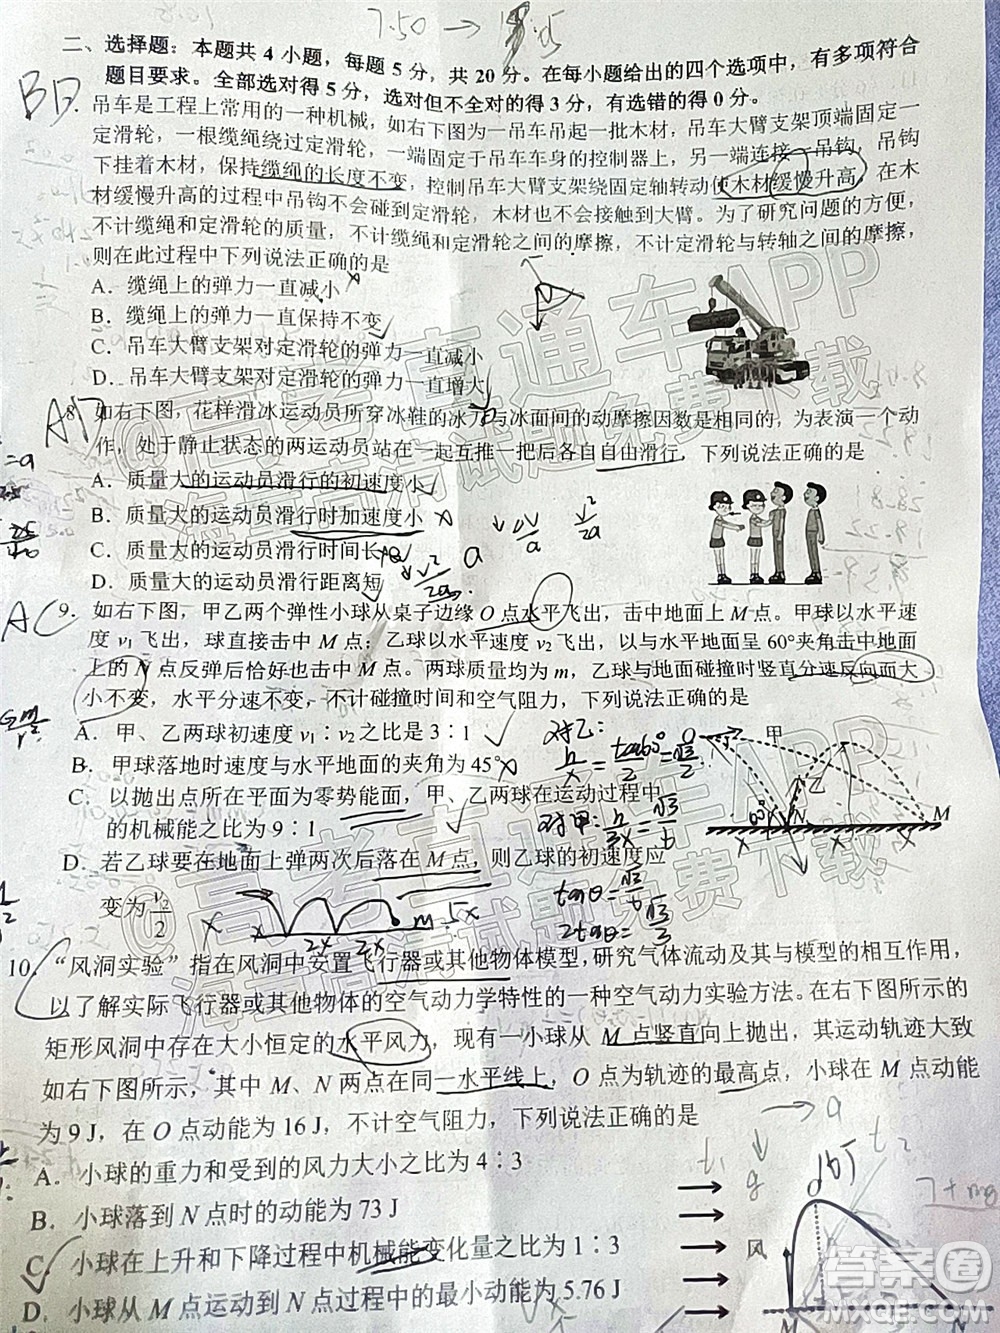 7.50 →
二、选择题：本题共 4 小题，每题 5 分，共 20 分。在每小题给出的四个选项中，有多项符合
题目要求。全部选对得 5 分，选对但不全对的得 3 分，有选错的得 0 分。
BD
吊车是工程上常用的一种机械，如右下图为一吊车吊起一批木材，吊车大臂支架顶端固定一
定滑轮，一根缆绳绕过定滑轮，一端固定于吊车车身的控制器上，另一端连接一吊钩，吊钩
下挂着木材，保持缆绳的长度不变，控制吊车大臂支架绕固定轴转动使木材缓慢升高，在木
材缓慢升高的过程中吊钩不会碰到定滑轮，木材也不会接触到大臂。为了研究问题的方便，
不计缆绳和定滑轮的质量，不计缆绳和定滑轮之间的摩擦，不计定滑轮与转轴之间的摩擦，
则在此过程中下列说法正确的是
A．缆绳上的弹力一直减小
B．缆绳上的弹力一直保持不变
C．吊车大臂支架对定滑轮的弹力一直减小
D．吊车大臂支架对定滑轮的弹力一直增大
AD
8．如右下图，花样滑冰运动员所穿冰鞋的冰刀与冰面间的动摩擦因数是相同的，为表演一个动
作，处于静止状态的两运动员站在一起互推一把后各自自由滑行，下列说法正确的是
A．质量大的运动员滑行的初速度小
B．质量大的运动员滑行时加速度小
C．质量大的运动员滑行时间长
D．质量大的运动员滑行距离短
AC
9．如右下图，甲乙两个弹性小球从桌子边缘 O 点水平飞出，击中地面上 M 点。甲球以水平速
度 v₁ 飞出，球直接击中 M 点；乙球以水平速度 v₂ 飞出，以与水平地面呈 60°夹角击中地面
上的 N 点反弹后恰好也击中 M 点。两球质量均为 m，乙球与地面碰撞时竖直分速反向而大
小不变，水平分速不变，不计碰撞时间和空气阻力，下列说法正确的是
A．甲、乙两球初速度 v₁∶v₂ 之比是 3∶1
B．甲球落地时速度与水平地面的夹角为 45°
C．以抛出点所在平面为零势能面，甲、乙两球在运动过程中
的机械能之比为 9∶1
D．若乙球要在地面上弹两次后落在 M 点，则乙球的初速度应
变为 v₂/2
O 甲
乙
60° N M
10．“风洞实验”指在风洞中安置飞行器或其他物体模型，研究气体流动及其与模型的相互作用，
以了解实际飞行器或其他物体的空气动力学特性的一种空气动力实验方法。在右下图所示的
矩形风洞中存在大小恒定的水平风力，现有一小球从 M 点竖直向上抛出，其运动轨迹大致
如右下图所示，其中 M、N 两点在同一水平线上，O 点为轨迹的最高点，小球在 M 点动能
为 9 J，在 O 点动能为 16 J，不计空气阻力，下列说法正确的是
A．小球的重力和受到的风力大小之比为 4∶3
B．小球落到 N 点时的动能为 73 J
C．小球在上升和下降过程中机械能变化量之比为 1∶3
D．小球从 M 点运动到 N 点过程中的最小动能为 5.76 J
O
风
M N
@高考直通车APP
海量高清试题免费下载
@高考直通车APP
海量高清试题免费下载
答案圈
MXQE.COM